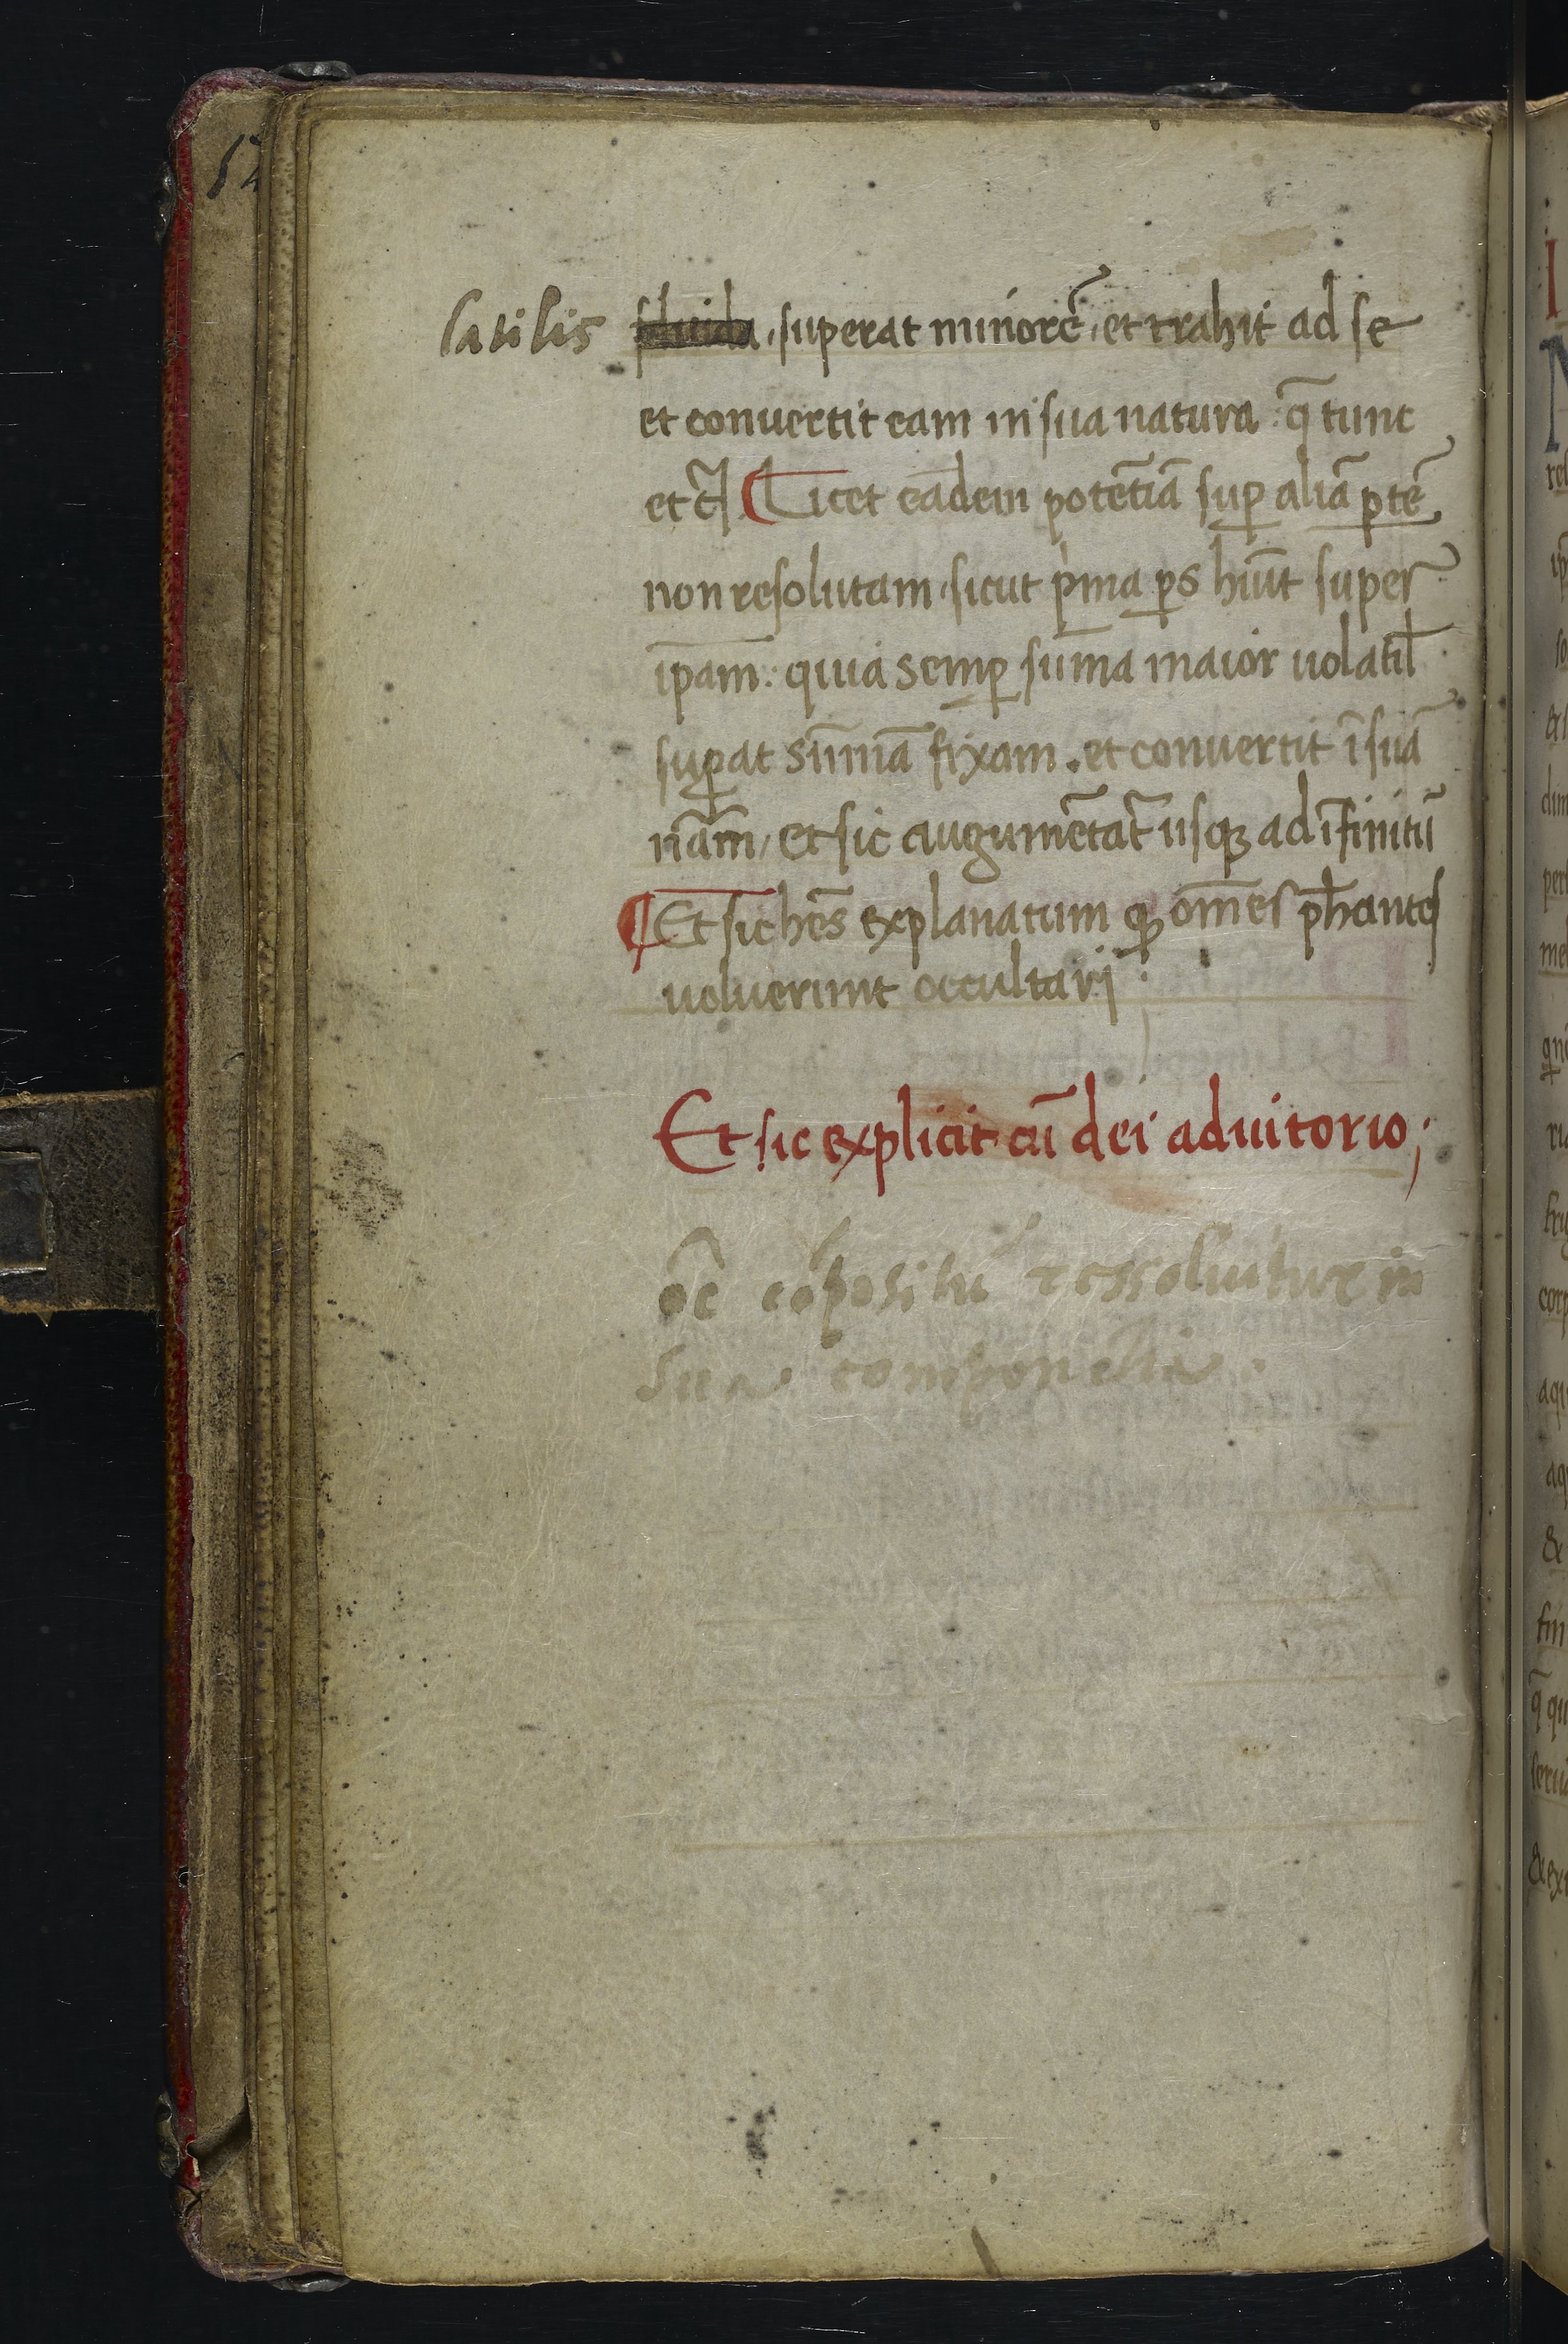 latilis fluida, superat minorē, et trahit ad se
et convertit eam in sua natura : q̄ tunc
etc̃ ¶ Licet eadem potētiā suꝑ aliā ꝑtē
non resolutam, sicut pͥma ꝑs hūit super
ip̄am : quia semꝑ sum̄a maior uolatil̄
suꝑat sūmā fixam . et convertit ī suā
nām̄, et sic augumētat̃ usqꝫ ad īfinitū
¶ Et sic hēs explanatum qꝫ om̄es ph̄antes
uoluerunt occultari :
Et sic explicit cū dei adiutorio ;
oē cōpositū ressoluitur in
sua componētia .